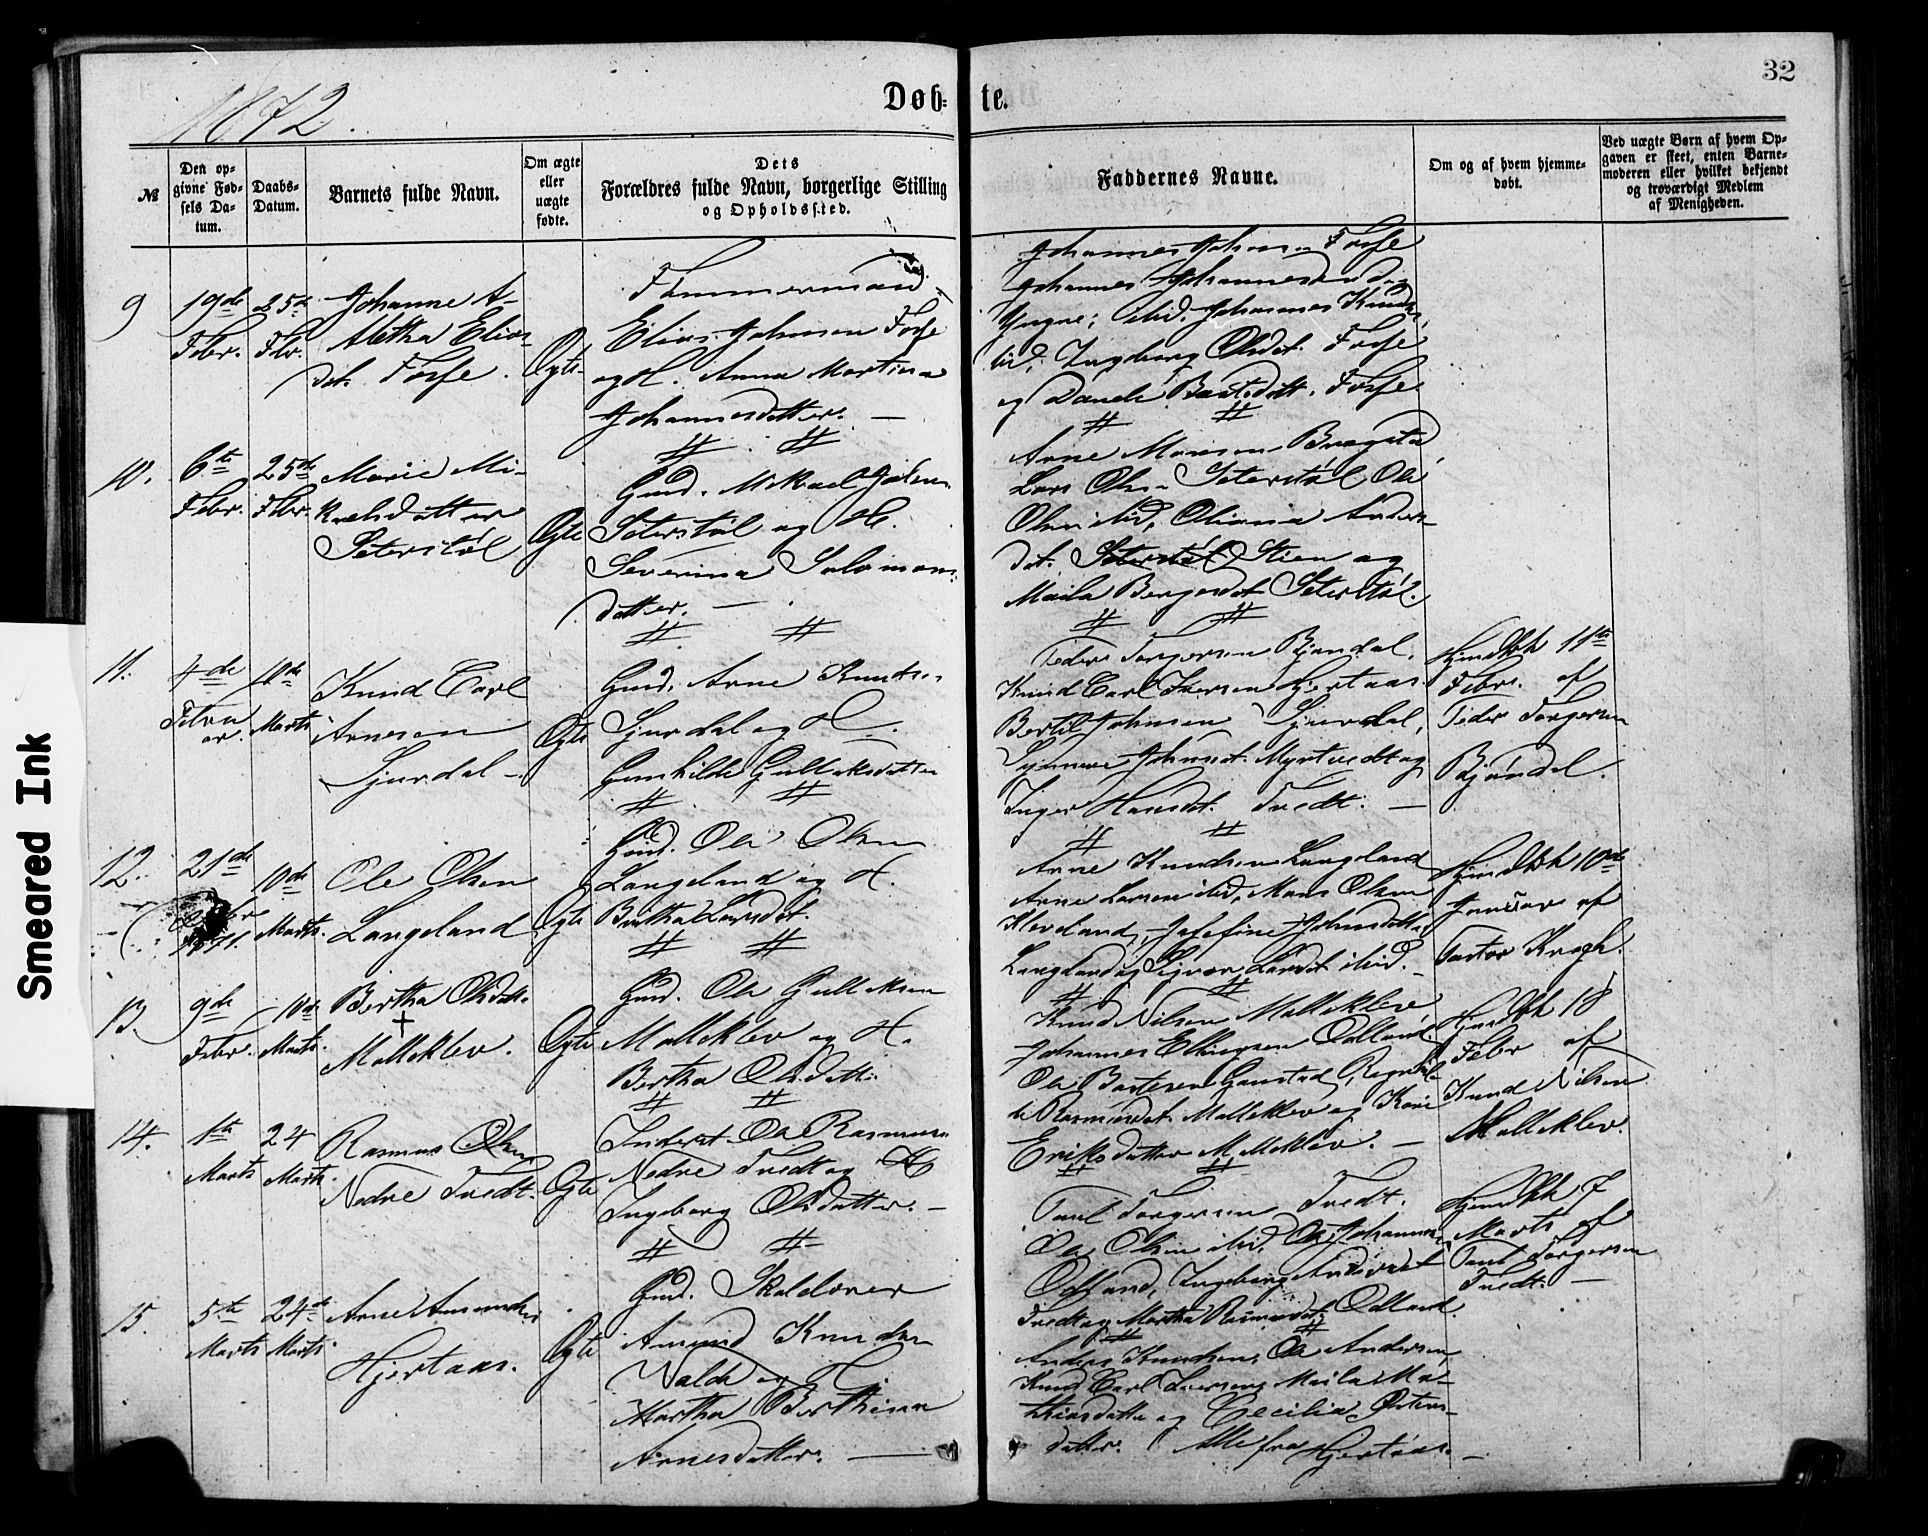 32
1872.
Døb-
te.
№
Den op-
givne Fød-
sels Da-
tum.
Daabs-
Datum.
Barnets fulde Navn.
Om ægte
eller
uægte
fødte.
Dets
Forældres fulde Navn, borgerlige Stilling
og Opholdssted.
Faddernes Navne.
Om og af hvem hjemme-
døbt.
Ved uægte Børn af hvem Op-
gaven er skeet, enten Barne-
moderen eller hvilket bekjendt
og troværdigt Medlem
af Menigheden.
9
19de
Febr.
25de
Fbr.
Johanne A-
letha Elias-
dt. Fosse.
Ægte
Tømmermand
Elias Johnsen Fosse
og H. Anna Martina
Johannesdatter. —
Johannes Johnsen Fosse
Johannes Johannesen
ibid. Johannes Knuds.
ibid, Ingeborg Olsdt. Fosse
og Bartdt. Fosse.
10.
6te
Febr.
25de
Febr.
Marie Mi-
kaelsdatter
Seterstøl
Ægte
Gmd. Mikael Johns.
Seterstøl og H.
Severina Salomons-
datter. —
Arne Monsen
Lars Olsen Seterstøl Ole
Olsen ibid, Oliana Anders-
dt. Seterstøl Stien og
Maila Bergesdt Seterstøl.
11.
4de
Febru
ar.
10de
Marts
Knud Carl
Arnesen
Sjurdal —
Ægte
Gmd. Arne Knudsen
Sjurdal og H.
Gunhilde Gulleksdatter
Peder Torgersen Bjøndal,
Knud Carl Iversen Hjertaas
Bertil Johnsen Sjurdal,
Synneve Johnsdt. Myrtvedt og
Inger Hansdt. Tvedt. —
Hjemdøbt 11te
Febr. af
Peder Torgersen
Bjøndal.
12.
21de
1871.
10de
Marts.
Ole Olsen
Langeland
Ægte
Gmd. Ole Olsen
Langeland og H.
Bertha Larsdt.
Arne Knudsen Langeland
Arne Larsen ibid, Mons Olsen
Kleveland, Josefine Johnsdatter
Langeland og Larsdt ibid. —
Hjemdøbt 10de
Januar af
Pastor Krogh.
13.
9de
Febr.
10de
Marts.
Bertha Olsdatt.
†
Malleklev.
Ægte
Gmd. Ole Gulleksen
Malleklev og H.
Bertha Olsdatt.
Knud Nilsen Malleklev
Johannes Ellingsen Odland
Ole Bastesen Gamstad, Ragnil-
de Rasmusdt. Malleklev og Kari
Eriksdatter Malleklev. —
Hjemdøbt 18
Febr af
Knud Nilsen
Malleklev.
14.
1te
Marts
24
Marts.
Rasmus Olsen
Nedre Tvedt.
Ægte
Inderst Ole Rasmusen
Nedre Tvedt og H
Ingeborg Olsdatter. —
Paul Torgersen Tvedt.
Ole Olsen ibid, Ole Johannes.
Odland, Ingeborg Andersdt
Tvedt og Martha Rasmusdt. Odland.
Hjemdøbt 7
Marts af
Paul Torgersen
Tvedt. —
15.
5te
Marts
24de
Marts
Arne Amundsen
Hjertaas.
Ægte
Gmd. Skolelærer
Amund Knudsen
Walde og H
Martha Berthina
Arnesdatter. —
Anders Knudsen, Ole Andersen,
Knud Carl Iversen, Maila Ma-
thiasdatter og Cecilia Østens-
datter. Alle fra Hjertaas. —
Smeared Ink